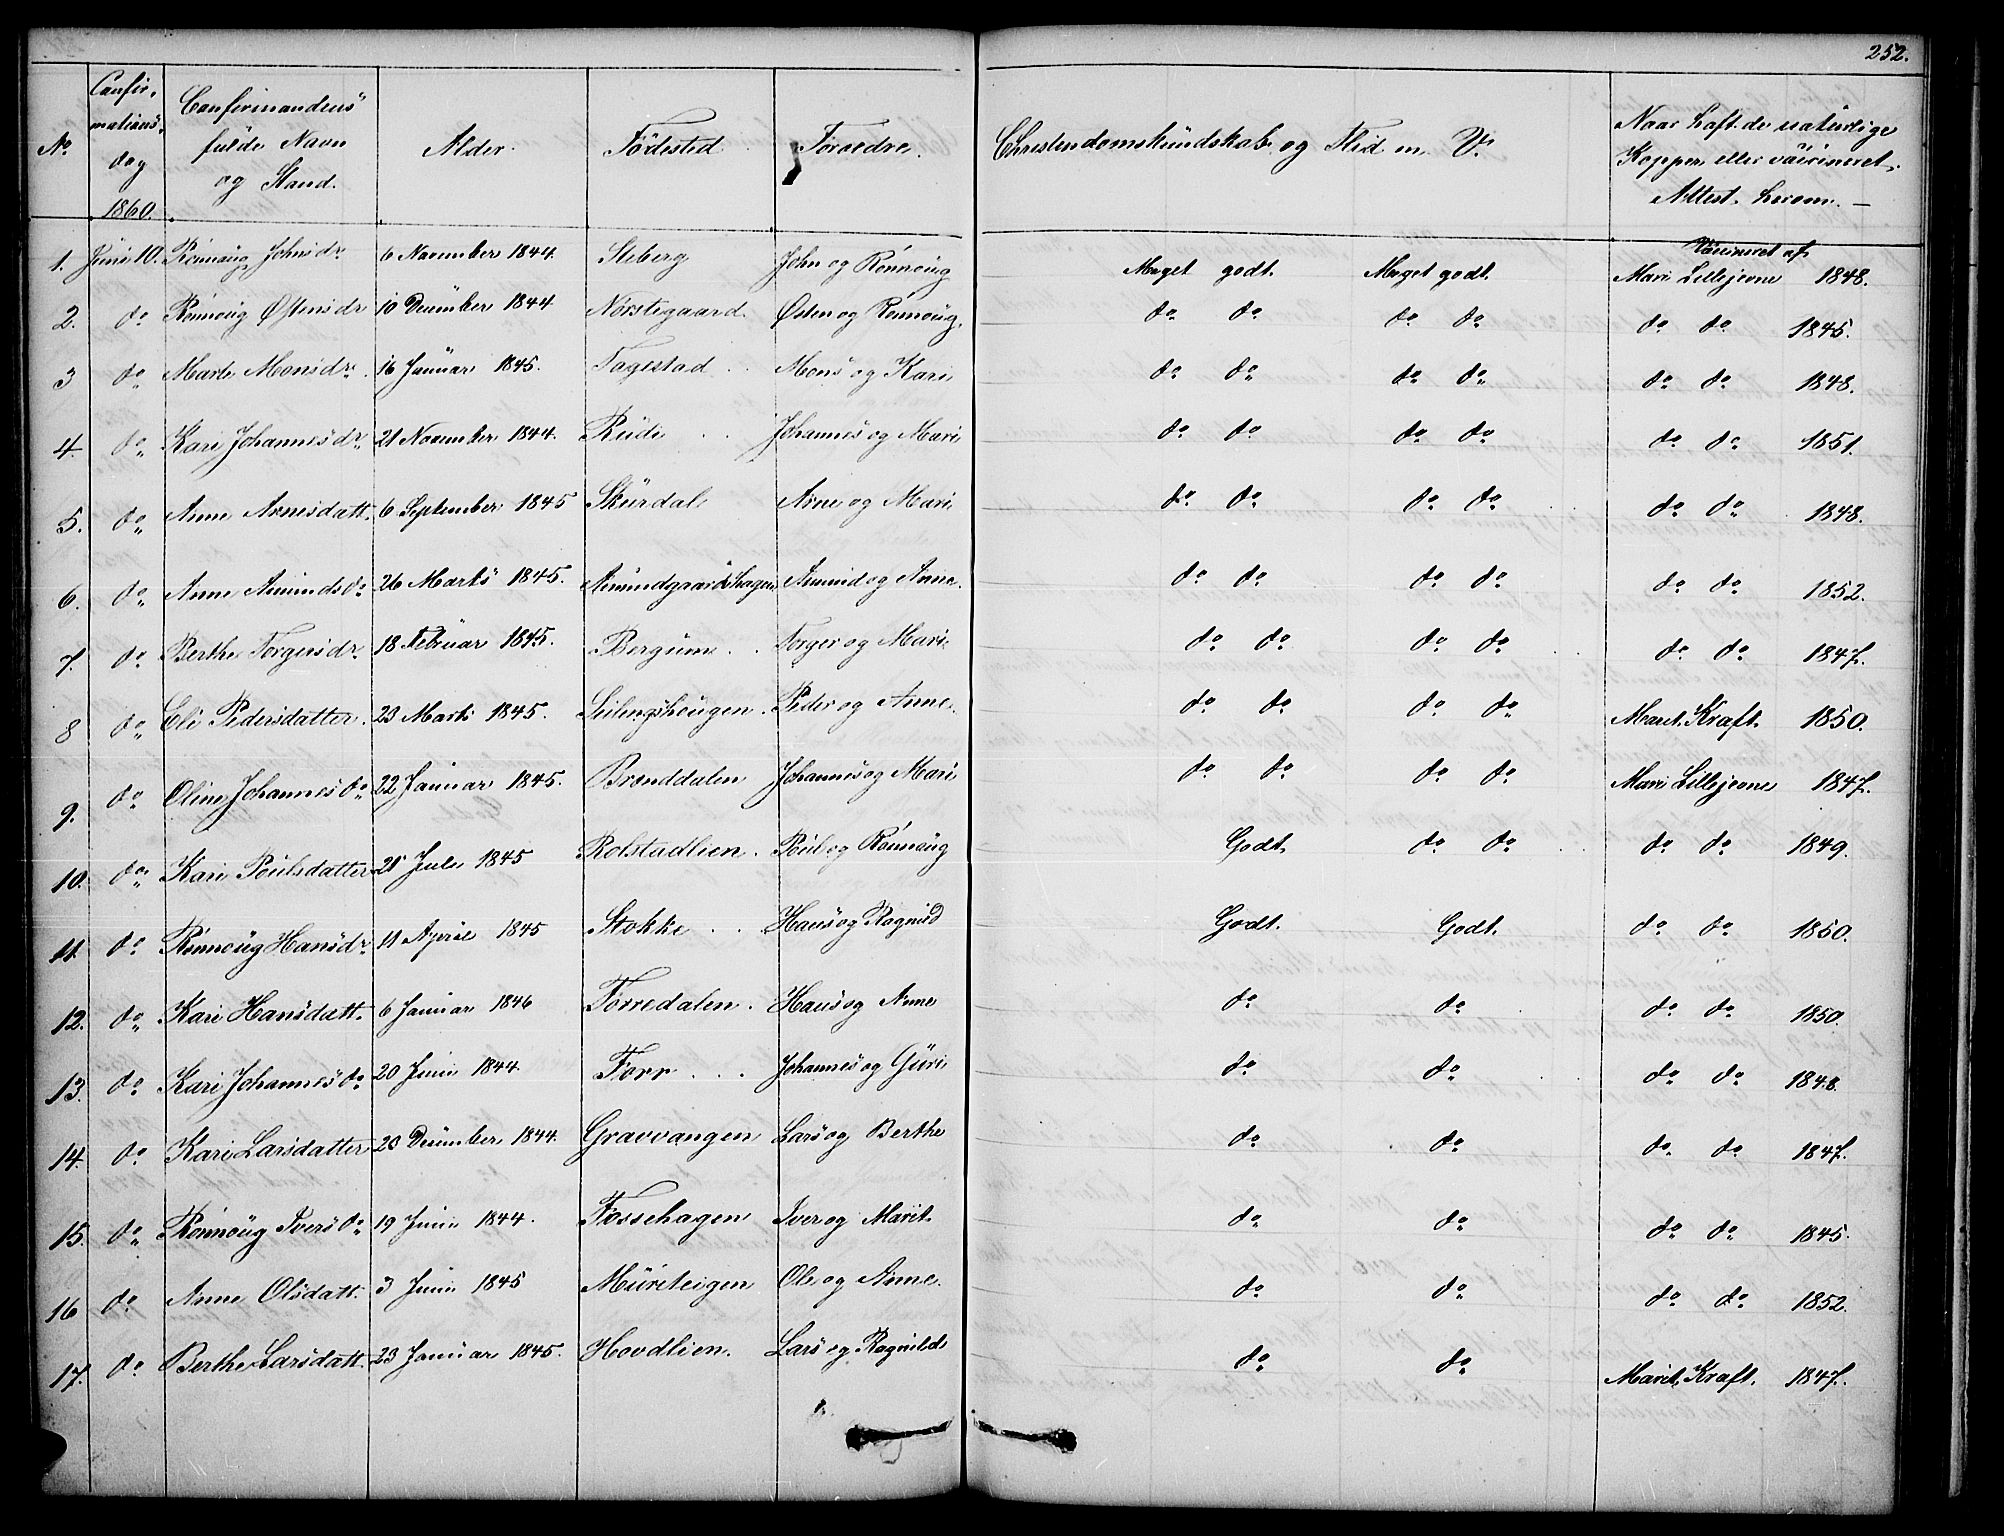 252.
No.
Confir-
mations-
dag
1860.
Confirmandens
fulde Navn
og Stand.
Alder.
Födested
Foreldre.
Christendomskundskab og Flid m. V.
Naar haft de naturlige
Kopper eller vaccineret.
Attest herom. —
1. Juni 10. Rönnoug Johnsdr 6 November 1844. Steberg John og Rönnoug Meget godt. Meget godt. Vaccineret af Mari Lillejorne 1848.
2. do Rönnoug Østensdr 10 December 1844 Norstegaard Østen og Rönnoug. do do do do do do 1845.
3 do Marte Monsdr. 16 Januar 1845. Fagestad Mons og Kari do do do do do do 1848.
4. do Kari Johannesdr 21 November 1844. Rude Johannes og Mari do do do do do do 1851.
5. do Anne Arnesdatt. 6 September 1845 Skurdal Arne og Mari do do do do do do 1848.
6. do Anne Amunds do 26 Marts 1845. Amundgaardshagen Amund og Anne. do do do do do do 1852.
7. do Berthe Torgersdr. 18 Februar 1845. Bergum Torger og Mari do do do do do do 1847.
8 do Eli Pedersdatter 23 Marts 1845. Seilingshougen Peder og Anne. do do do do Marit Kraft. 1850.
9. do Oline Johannes do 22 Januar 1845. Brenddalen Johannes og Mari do do do do Mari Lillejorne 1847.
10. do Kari Poulsdatter 21 Juli 1845 Rolstadlien. Poul og Rönnoug Godt. do do do do 1849.
11. do Rönnoug Hansdr. 11 April 1845 Stokke Hans og Ragnild Godt. Godt. do do 1850.
12. do Kari Hansdatt. 6 Januar 1846 Forredalen. Hans og Anne do do do do 1850.
13. do Kari Johannes do 20 Juni 1844 Forr Johannes og Guri do do do do 1848.
14. do Kari Larsdatter 20 December 1844. Gravvangen Lars og Berthe do do do do 1847.
15. do Rönnoug Ivers do 19 Juni 1844. Fossehagen Iver og Marit do do do do 1845.
16 do Anne Olsdatt. 3 Juni 1845 Mureteigen Ole og Anne. do do do do 1852.
17. do Berthe Larsdatt 23 Januar 1845. Hovdlien. Lars og Ragnild do do Marit Kraft. 1847.